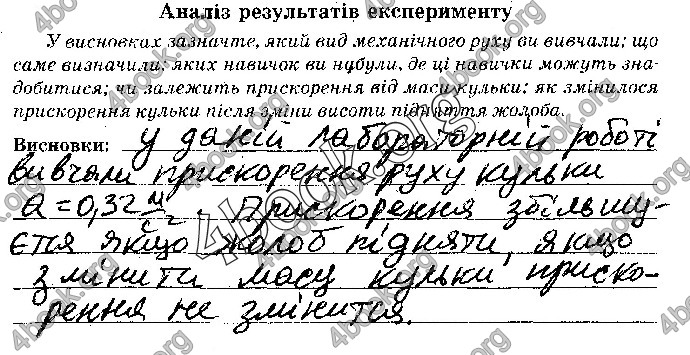 Аналіз результатів експерименту
У висновках зазначте, який вид механічного руху ви вивчали; що
саме визначили; яких навичок ви набули, де ці навички можуть зна-
добитися; чи залежить прискорення від маси кульки; як змінилося
прискорення кульки після зміни висоти підняття жолоба.
Висновки: У даній лабораторній роботі
вивчали прискорення руху кульки
a = 0,32 м/с². Прискорення збільшу-
ється якщо жолоб підняти, якщо
змінити масу кульки приско-
рення не змінится.
4book.org